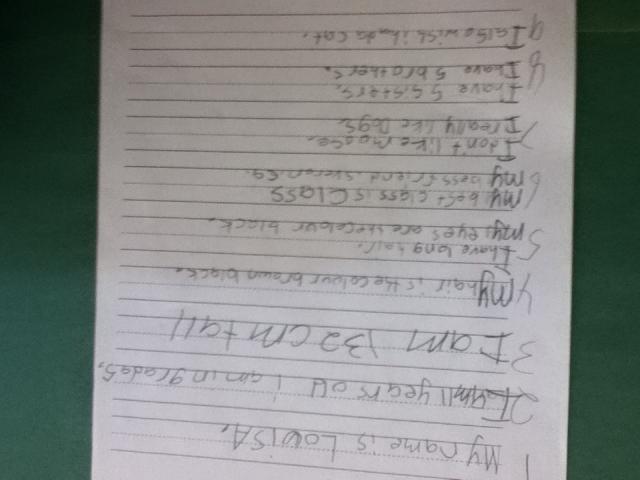 1 My name is LOUISA.
2 I am 11 years old i am in grade 5.
3 I am 132 cm tall
4 my hair is the colour brown black.
I have long hair.
5 my eyes are the colour black.
my best class is CLASS
6 my bess friend is
I don't like moose.
7 I really like Dogs.
I have 5 sisters.
8 I have 5 brothers.
9 I also wish i hada cat.